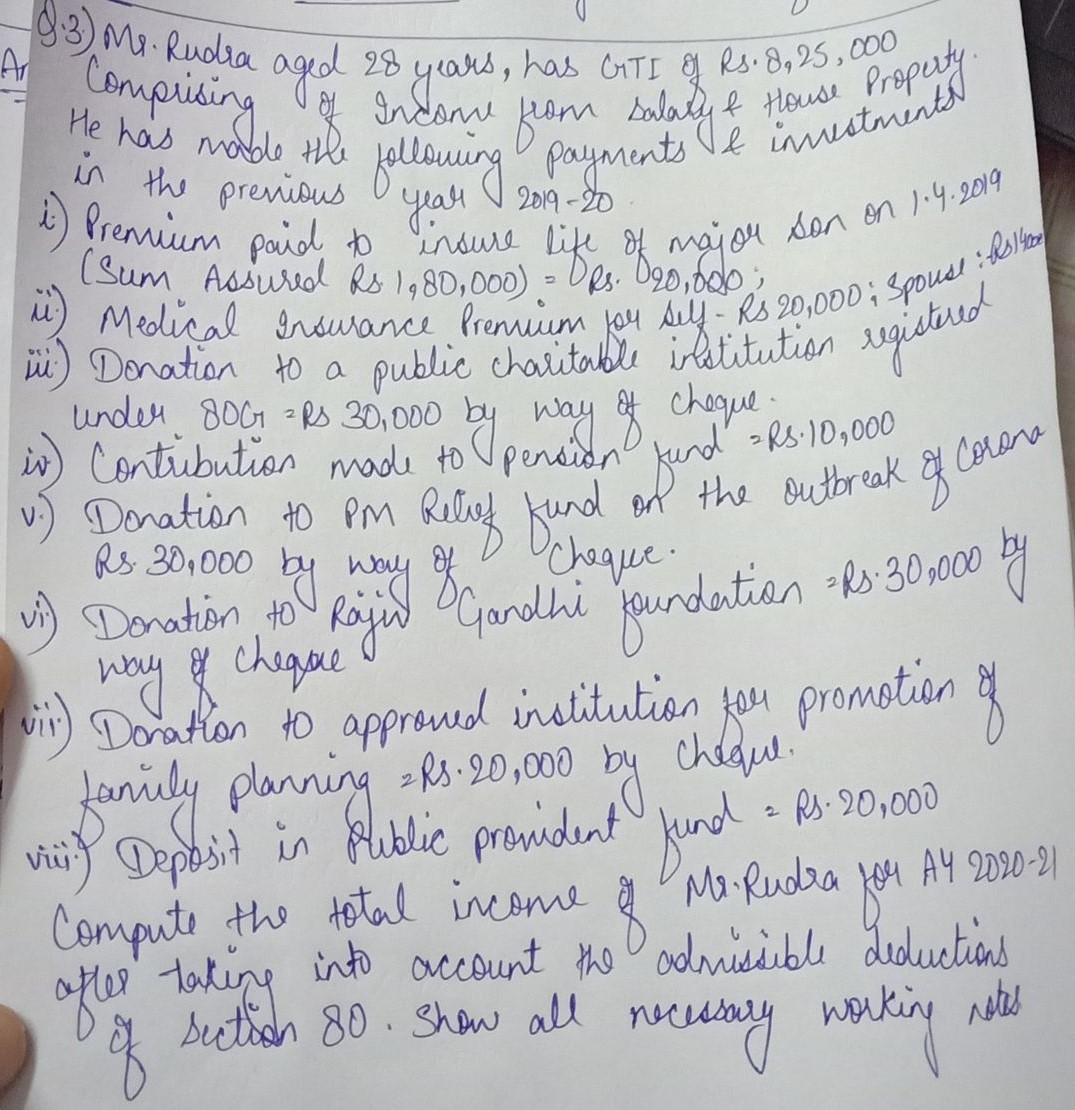 Q.3) Mr. Rudra aged 28 years, has GTI of Rs. 8,25,000
Comprising of Income from Salary & House Property.
He has made the following payments & investments
in the previous year 2019-20
i) Premium paid to insure life of major son on 1.4.2019
(Sum Assured Rs. 1,80,000) = Rs. 20,000;
ii) Medical Insurance Premium for Self - Rs 20,000; Spouse: Rs 14000
iii) Donation to a public charitable institution registered
under 80G = Rs 30,000 by way of cheque.
iv) Contribution made to pension fund = Rs. 10,000
v.) Donation to PM Relief fund on the outbreak of Corona
Rs. 30,000 by way of Cheque.
vi) Donation to Rajiv Gandhi foundation = Rs. 30,000 by
way of cheque
vii) Donation to approved institution for promotion of
family planning = Rs. 20,000 by cheque.
viii) Deposit in Public provident fund = Rs. 20,000
Compute the total income of Mr. Rudra for AY 2020-21
after taking into account the admissible deductions
of section 80. Show all necessary working notes